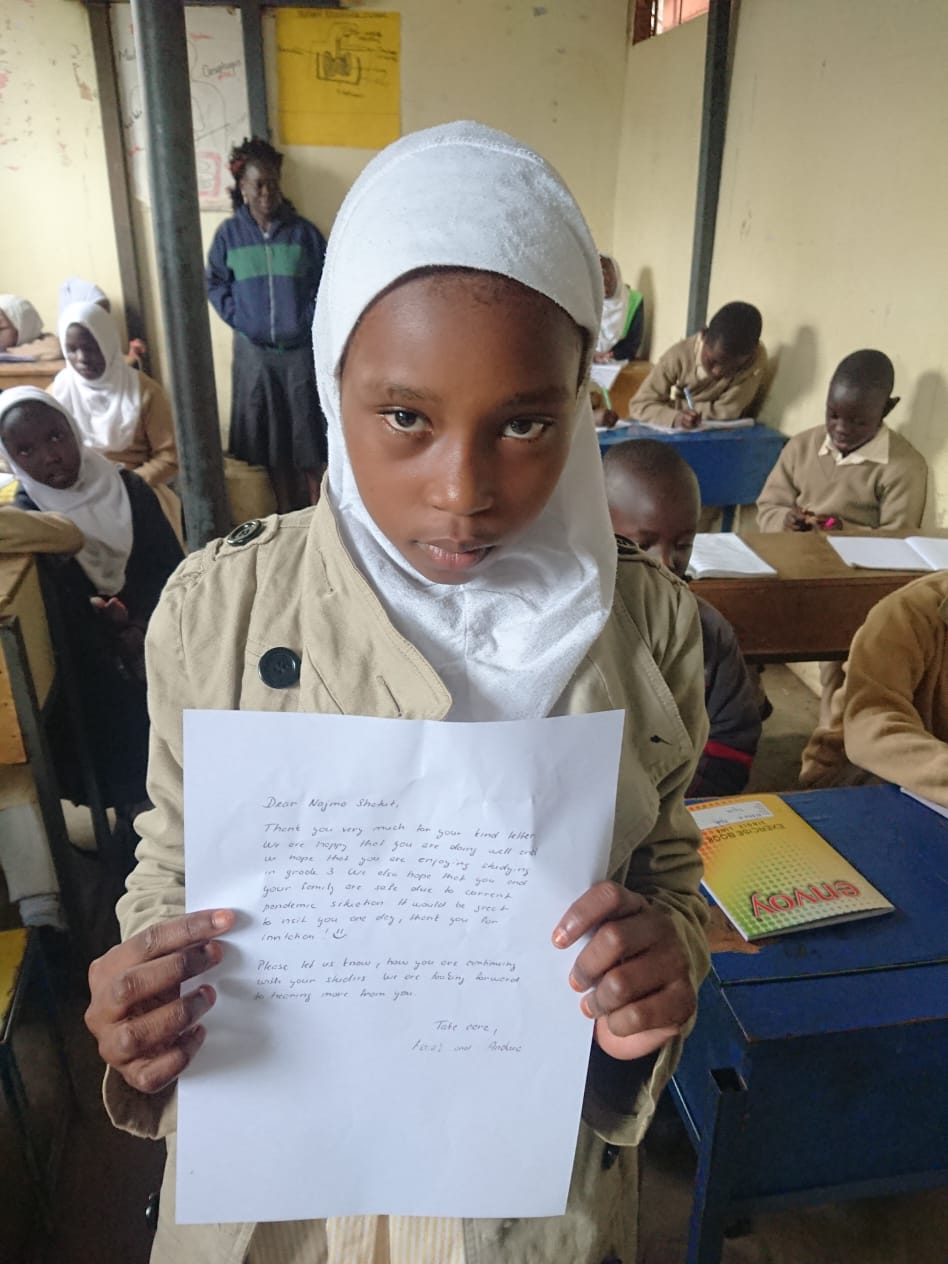 Oesophagus
Dear Najma Shokut,
Thank you very much for your kind letter.
We are happy that you are doing well and
we hope that you are enjoying studying
in grade 3. We also hope that you and
your family are safe due to current
pandemic situation. It would be great
to visit you one day, thank you for
invitation! :)
Please let us know, how you are continuing
with your studies. We are looking forward
to hearing more from you.
Take care,
and Andrea
EXERCISE BOOK
SINGLE LINE
envoy